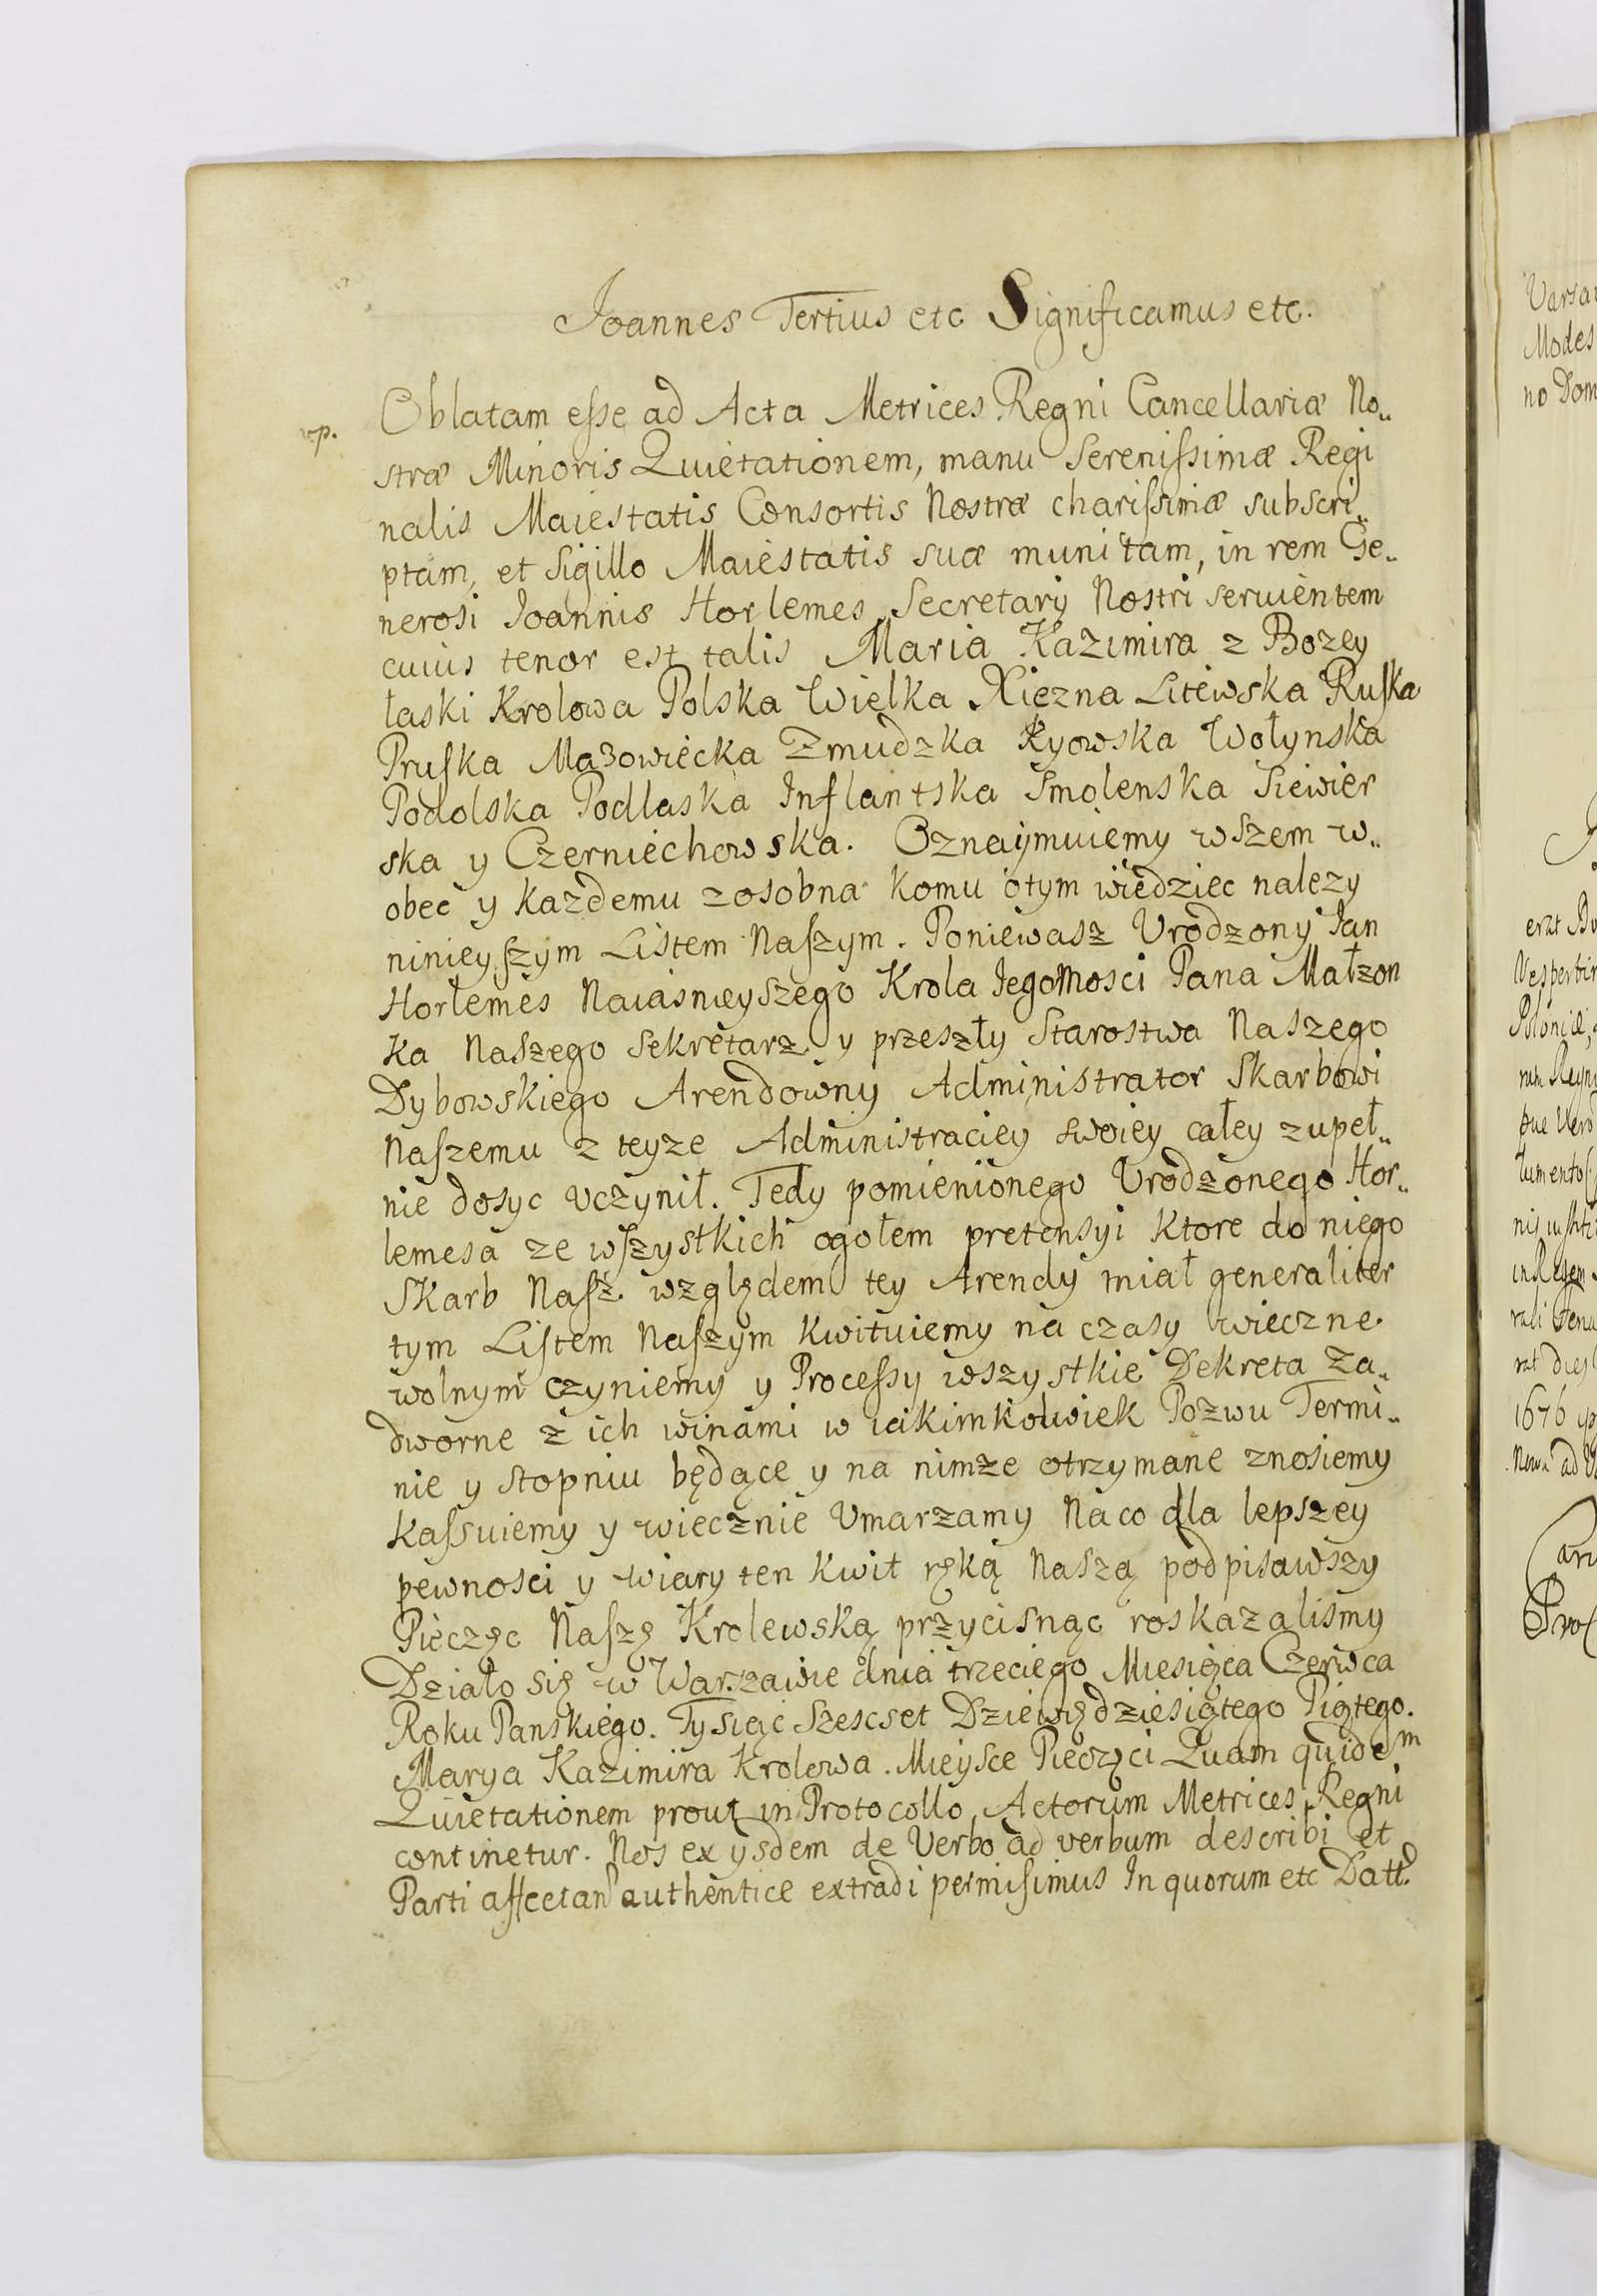 Joannes Tertius etc Significamus etc.
Oblatam esse ad Acta Metrices Regni Cancellariæ No„
stræ Minoris Quietationem, manu Serenissimæ Regi
nalis Maiestatis Consortis Nostræ charissimæ subscri„
ptam, et Sigillo Maiestatis suæ munitam, in rem Ge„
nerosi Ioannis Horlemes Secretarij Nostri seruientem
cuius tenor est talis Maria Kazimira z Bozey
łaski Krolowa Polska Wielka Xiezna Litewska Ruska
Pruska Mazowiecka Zmudzka Kyowska Wołynska
Podolska Podlaska Inflantska Smolenska Siewier
ska y Czerniechowska. Oznaymuiemy wszem w„
obec y kazdemu zosobna komu otym wiedziec nalezy
ninieyszym Listem Naszym. Poniewasz Vrodzony Jan
Horlemes Naiasnieyszego Krola Iegomosci Pana Małzon
ka Naszego Sekretarz y przeszły Starostwa Naszego
Dybowskiego Arendowny Administrator Skarbowi
Naszemu z teyze Administraciey swoiey całey zupeł„
nie dosyc vczynił. Tedy pomienionego Vrodzonego Hor„
lemesa ze wszystkich ogołem pretensyi ktore do niego
Skarb Nasz względem tey Arendy miał generaliter
tym Listem Naszym kwituiemy na czasy wieczne
wolnym czyniemy y Processy wszystkie Dekreta Za„
dworne z ich winami w iakimkolwiek Pozwu Termi„
nie y stopniu będące y na nimze otrzymane znosiemy
kassuiemy y wiecznie Vmarzamy Na co dla lepszey
pewnosci y wiary ten kwit ręką Naszą podpisawszy
Pieczęc Naszę Krolewską przycisnąc roskazalismy
Działo się w Warszawie dnia trzeciego Miesiąca Czerwca
Roku Panskiego. Tysiąc Szescset Dziewędziesiątego Piątego.
Marya Kazimira Krolowa. Mieysce Pieczęci Quam quidem
Quietationem prout in Protocollo Actorum Metrices Regni
continetur. Nos ex ijsdem de Verbo ad verbum describi et
Parti affectan authentice extradi permisimus In quorum etc Datt.
Modes
no Dom
1676